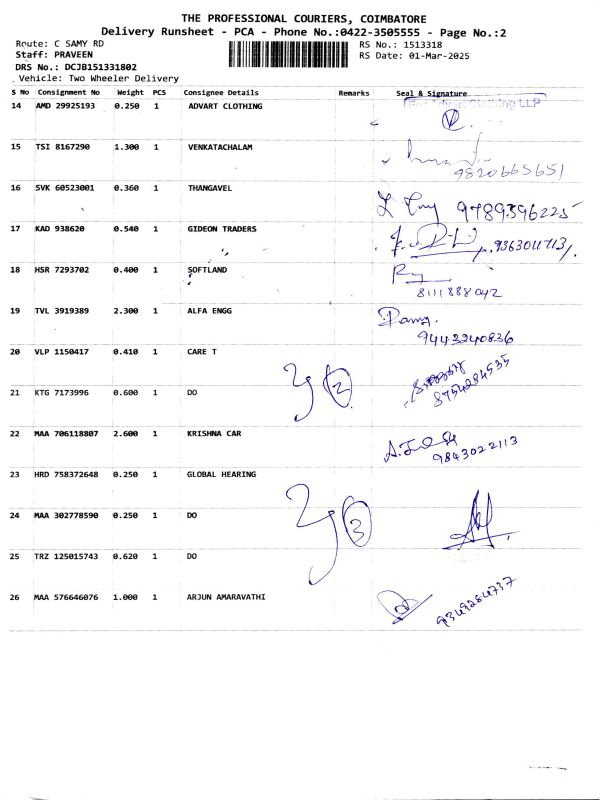 THE PROFESSIONAL COURIERS, COIMBATORE
Delivery Runsheet - PCA - Phone No.:0422-3505555 - Page No.:2
Route: C SAMY RD RS No.: 1513318
Staff: PRAVEEN RS Date: 01-Mar-2025
DRS No.: DCJB151331802
Vehicle: Two Wheeler Delivery
S No Consignment No Weight PCS Consignee Details Remarks Seal & Signature
14 AMD 29925193 0.250 1 ADVART CLOTHING
15 TSI 8167290 1.300 1 VENKATACHALAM
9820665651
16 SVK 60523001 0.360 1 THANGAVEL
9789596225
17 KAD 938620 0.540 1 GIDEON TRADERS
9363011713
18 HSR 7293702 0.400 1 SOFTLAND
8111888042
19 TVL 3919389 2.300 1 ALFA ENGG
9443240836
20 VLP 1150417 0.410 1 CARE T
2
8754284535
21 KTG 7173996 0.600 1 DO
22 MAA 706118807 2.600 1 KRISHNA CAR
9843022113
23 HRD 758372648 0.250 1 GLOBAL HEARING
24 MAA 302778590 0.250 1 DO
3
25 TRZ 125015743 0.620 1 DO
26 MAA 576646076 1.000 1 ARJUN AMARAVATHI
9349284737